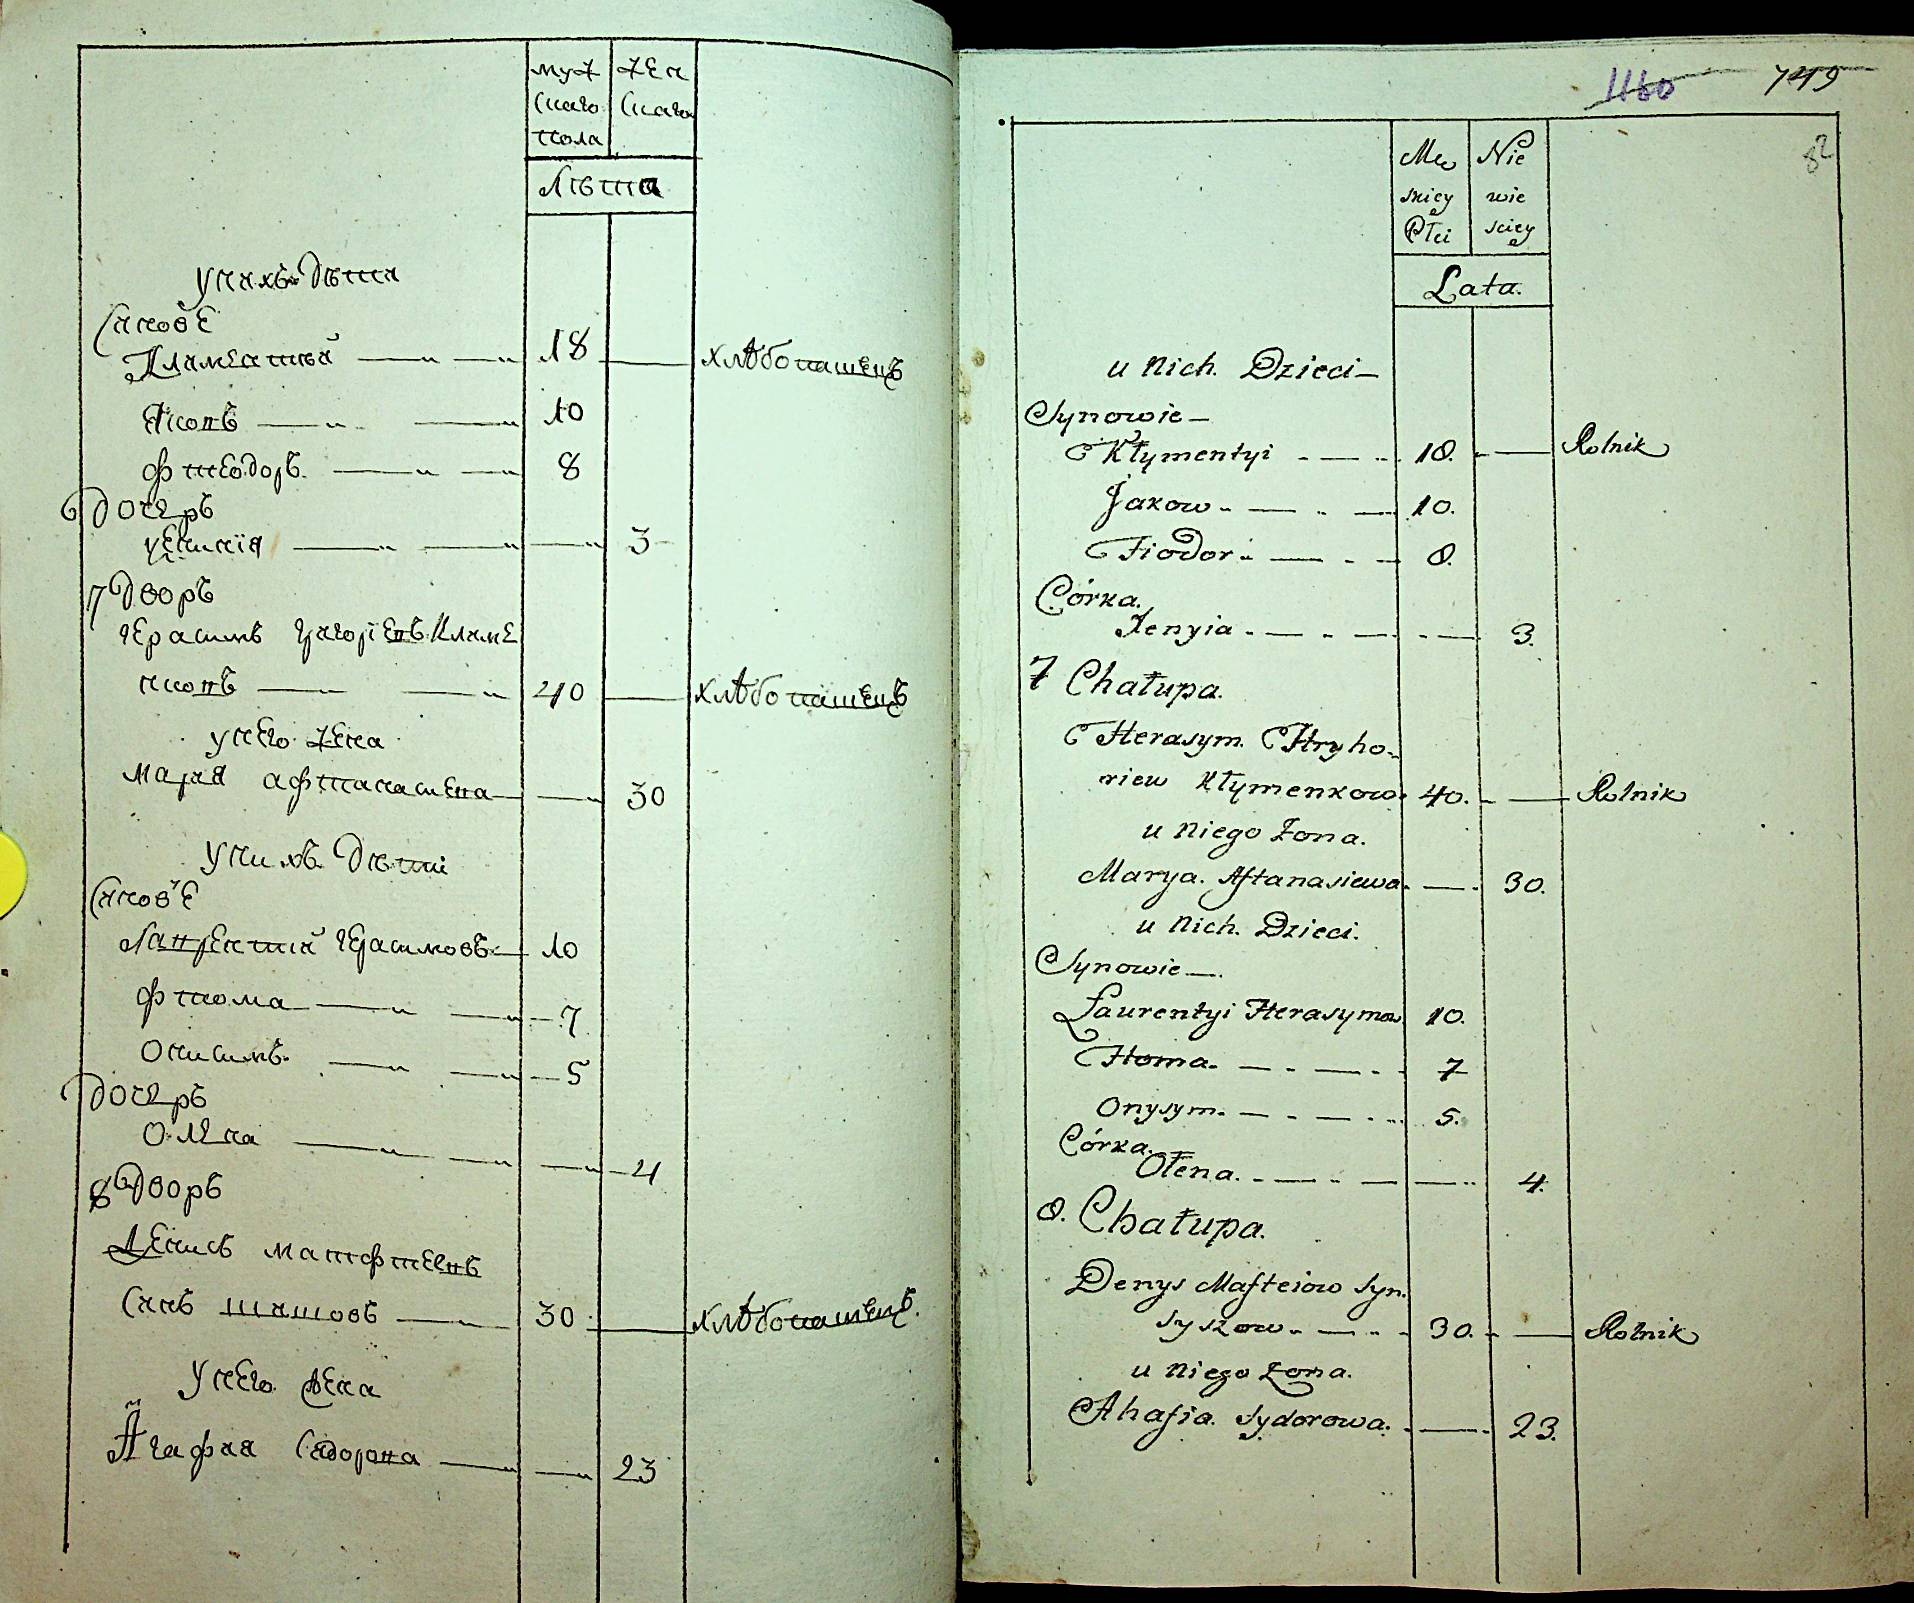 муж жен
скаго скаго
пола
Лѣта
у нихъ дѣти
Синове
Климентий 18 хлѣбопашецъ
Яковъ 10
Фтеодоръ 8
Дочерь
3
7 Дворъ
Герасимъ Григориевъ Климе
нковъ 40 хлѣбопашецъ
у него жена
Мария Афтанасиева 30
у нихъ дѣти
Синове
Лаврентий Герасимовъ 10
Фтома 7
Онисимъ 5
Дочерь
Олена 4
8 Дворъ
Денисъ Матфтеевъ
синъ Шишовъ 30 хлѣбопашецъ
у него жена
Агафия Сидорова 23
1160 749
82
Mę Nie
skiey wie
Płci sciey
Lata.
u Nich. Dzieci
Synowie
Kłymentyi 18. Rolnik
Jakow 10.
Fiodor 8.
Córka.
Xenyia 3.
7 Chałupa.
Herasym. Hryho
riew Kłymenkow 40. Rolnik
u Niego Żona.
Marya. Aftanasiewa. 30.
u Nich. Dzieci.
Synowie
Laurentyi Herasymow 10.
Homa. 7
Onysym. 5.
Córka.
Ołena. 4.
8. Chałupa.
Denys Mafteiow Syn.
Syszow 30. Rolnik
u Niego Żona.
Ahafia. Sydorowa. 23.